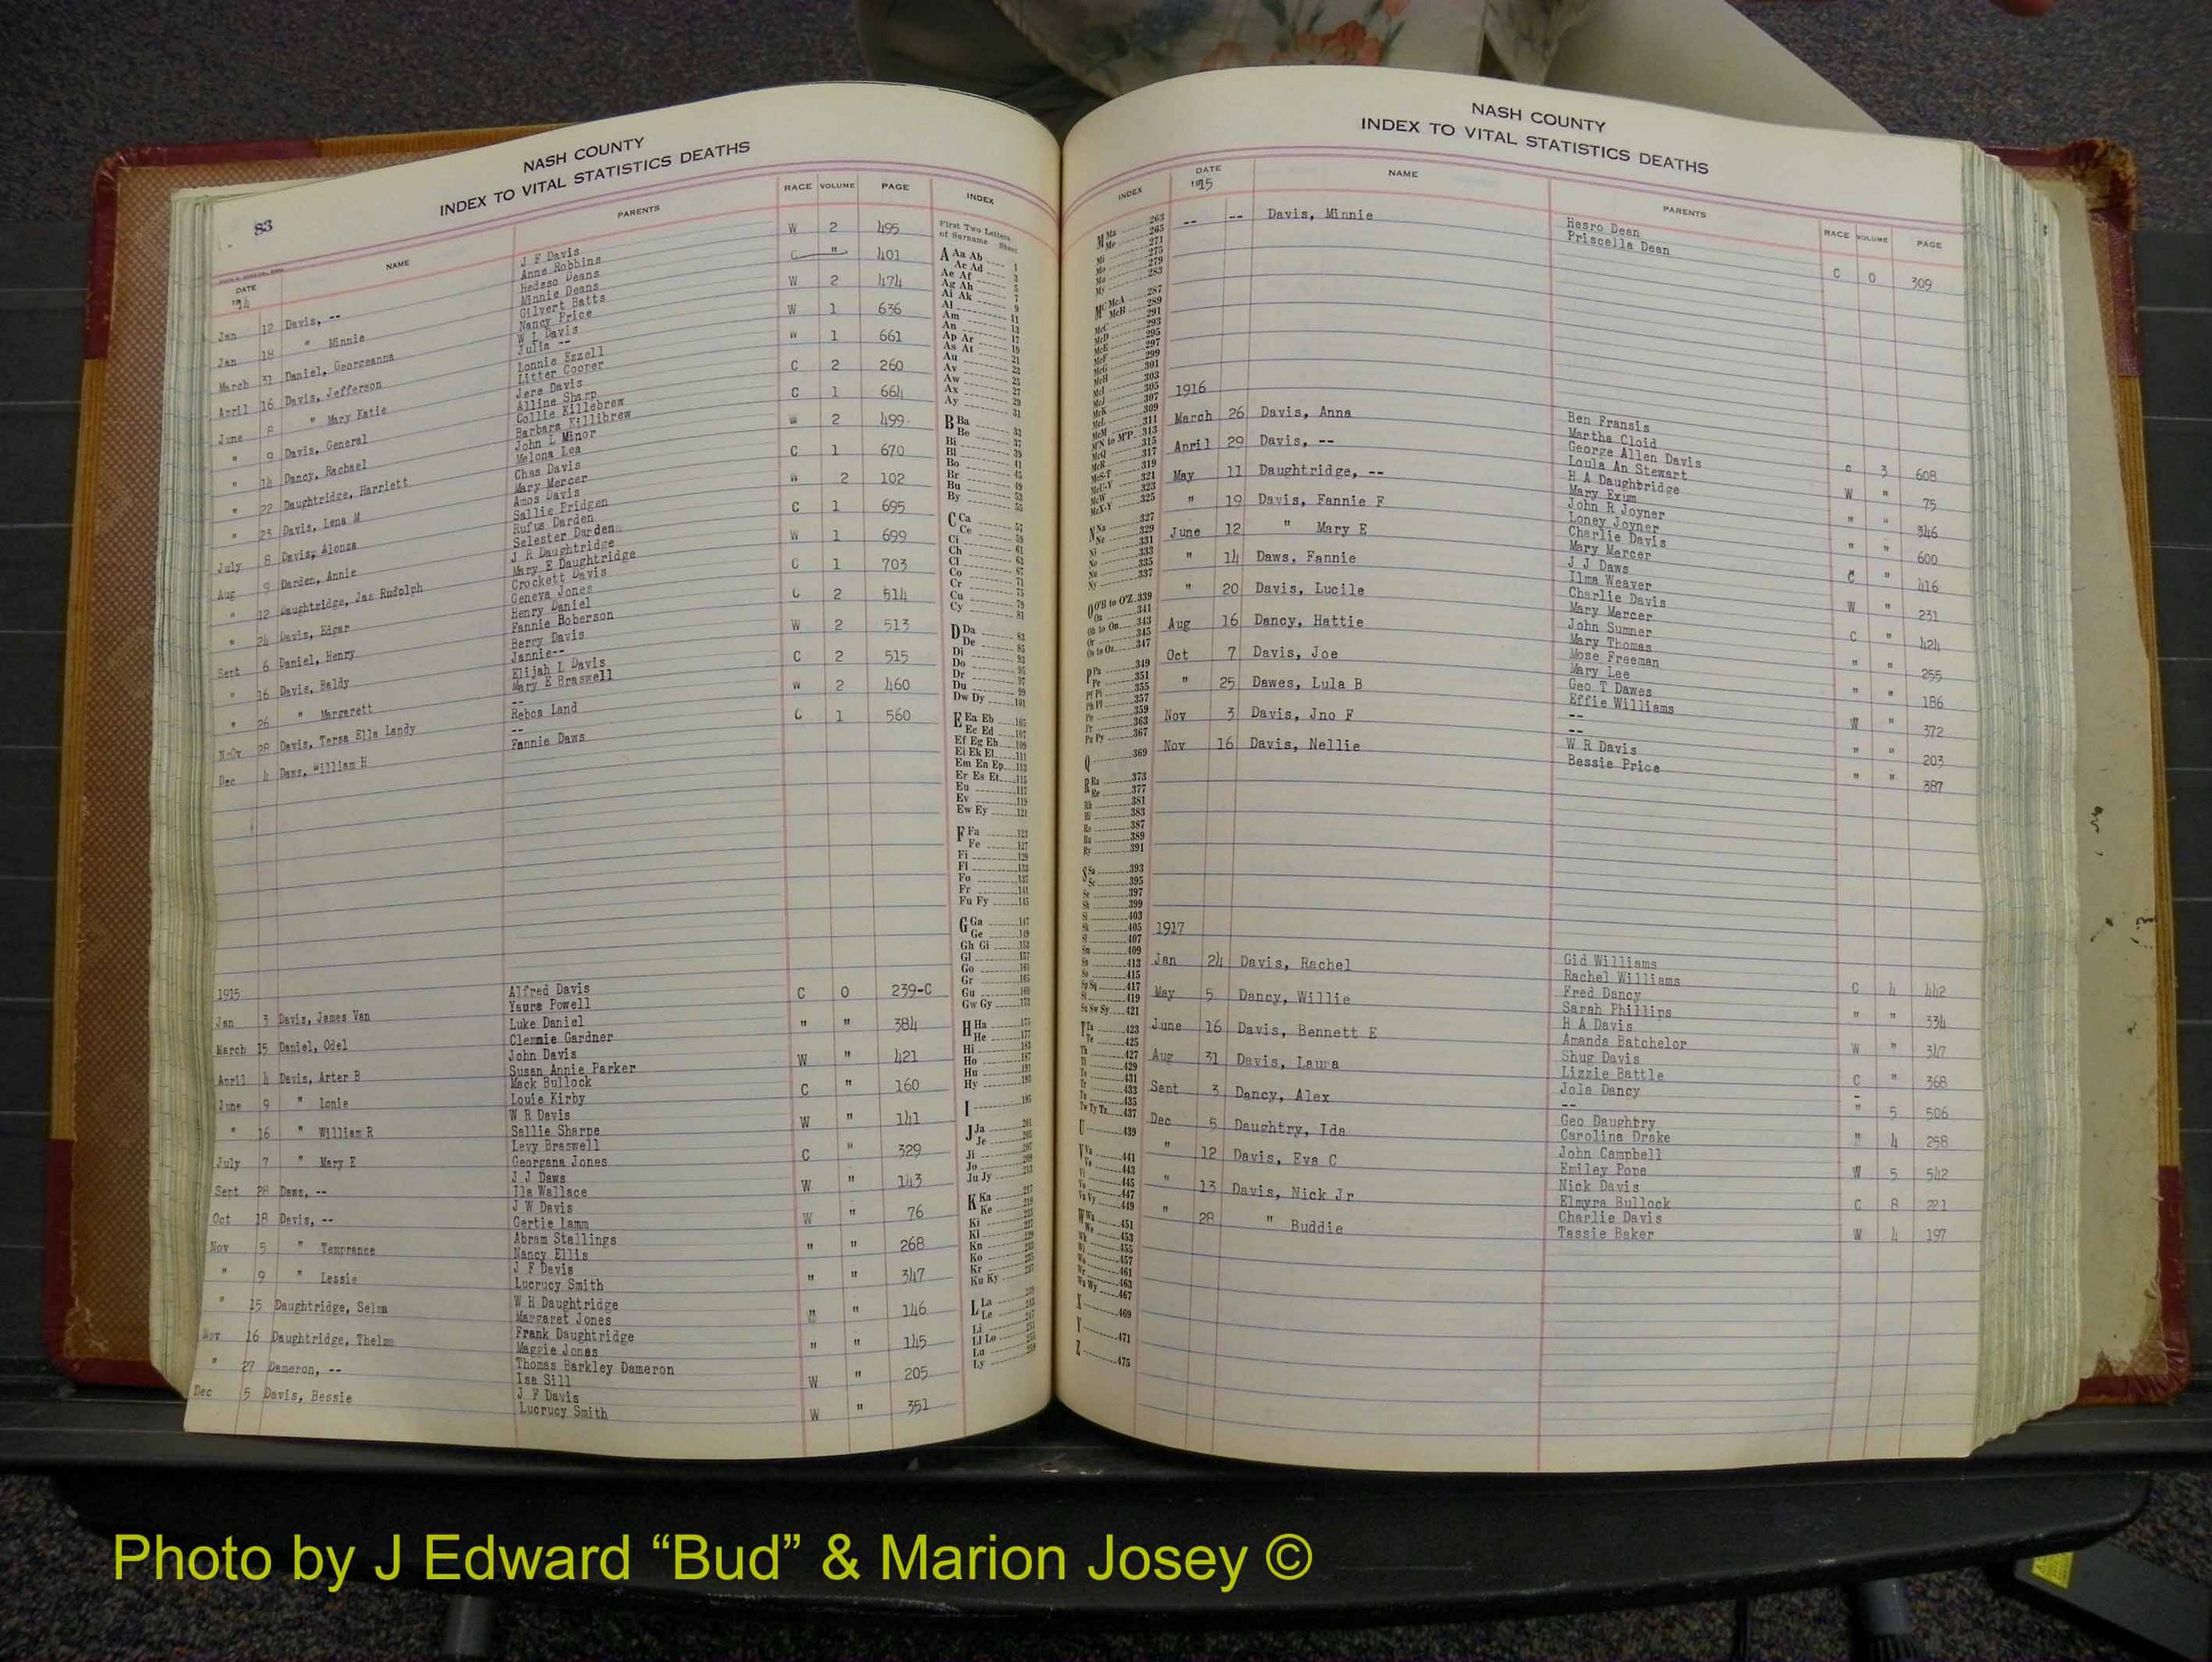 83
NASH COUNTY
INDEX TO VITAL STATISTICS DEATHS
DATE NAME PARENTS RACE VOLUME PAGE INDEX
1914
Jan 12 Davis, -- J F Davis W 2 495
Anne Robbins
Jan 18 " Minnie Hedsso Deans C " 401
Minnie Deans
March 31 Daniel, Georgeanna Gilvert Batts W 2 474
Nancy Price
April 16 Davis, Jefferson W L Davis W 1 636
Julia --
June 8 " Mary Katie Lonnie Ezzell W 1 661
Litter Cooper
" 9 Davis, General Jere Davis C 2 260
Alline Sharp
" 14 Dancy, Rachael Collie Killebrew C 1 664
Barbara Killibrew
" 22 Daughtridge, Harriett John L Minor W 2 499
Melona Lea
" 23 Davis, Lena M Chas Davis C 1 670
Mary Mercer
July 8 Davis, Alonza Amos Davis W 2 102
Sallie Pridgen
Aug 9 Darden, Annie Rufus Darden C 1 695
Selester Darden
" 12 Daughtridge, Jas Rudolph J R Daughtridge W 1 699
Mary E Daughtridge
" 24 Davis, Edgar Crockett Davis C 1 703
Geneva Jones
Sept 6 Daniel, Henry Henry Daniel C 2 514
Fannie Boberson
" 16 Davis, Baldy Berry Davis W 2 513
Jannie--
" 26 " Margarett Elijah L Davis C 2 515
Mary E Braswell
Nov 28 Davis, Tersa Ella Landy -- W 2 460
Rebca Land
Dec 4 Daws, William H -- C 1 560
Fannie Daws
1915
Jan 3 Davis, James Van Alfred Davis C 0 239-C
Yaura Powell
March 15 Daniel, Odel Luke Daniel " " 384
Clemmie Gardner
April 4 Davis, Arter B John Davis W " 421
Susan Annie Parker
June 9 " Lonie Mack Bullock C " 160
Louie Kirby
" 16 " William R W R Davis W " 141
Sallie Sharpe
July 7 " Mary E Levy Braswell C " 329
Georgana Jones
Sept 28 Daws, -- J J Daws W " 143
Ila Wallace
Oct 18 Davis, -- J W Davis W " 76
Certie Lamm
Nov 5 " Temprance Abram Stallings " " 268
Nancy Ellis
" 9 " Lessie J F Davis " " 347
Lucrucy Smith
" 15 Daughtridge, Selma W H Daughtridge " " 146
Margaret Jones
Nov 16 Daughtridge, Thelma Frank Daughtridge " " 145
Maggie Jones
" 27 Dameron, -- Thomas Barkley Dameron W " 205
Isa Sill
Dec 5 Davis, Bessie J F Davis W " 351
Lucrucy Smith
First Two Letters
of Surname Sheet
A Aa Ab 1
Ac Ad 3
Ae Af 5
Ag Ah 7
Ai Ak 9
Al 11
Am 13
An 17
Ap Ar 19
As At 21
Au 23
Av 25
Aw 27
Ax 29
Ay 31
B Ba 33
Be 37
Bi 39
Bl 41
Bo 45
Br 49
Bu 53
By 55
C Ca 57
Ce 59
Ci 61
Ch 63
Cl 67
Co 71
Cr 75
Cu 79
Cy 81
D Da 83
De 85
Di 93
Do 95
Dr 97
Du 99
Dw Dy 101
E Ea Eb 105
Ec Ed 107
Ef Eg Eh 109
Ei Ek El 111
Em En Ep 113
Er Es Et 115
Eu 117
Ev 119
Ew Ey 121
F Fa 123
Fe 127
Fi 129
Fl 133
Fo 137
Fr 141
Fu Fy 145
G Ga 147
Ge 149
Gh Gi 153
Gl 157
Go 161
Gr 165
Gu 169
Gw Gy 173
H Ha 175
He 177
Hi 183
Ho 187
Hu 191
Hy 193
I 195
J Ja 201
Je 205
Ji 207
Jo 209
Ju Jy 213
K Ka 217
Ke
Ki
Kl
Kn
Ko
Kr
Ku Ky
L La
Le
Li
Ll Lo
Lu
Ly
NASH COUNTY
INDEX TO VITAL STATISTICS DEATHS
INDEX DATE NAME PARENTS RACE VOLUME PAGE
1915
-- -- Davis, Minnie Hesro Dean C 0 309
Priscella Dean
1916
March 26 Davis, Anna Ben Fransis C 3 608
Martha Cloid
April 29 Davis, -- George Allen Davis W " 75
Loula An Stewart
May 11 Daughtridge, -- H A Daughbridge " " 346
Mary Exum
" 19 Davis, Fannie F John R Joyner " " 600
Loney Joyner
June 12 " Mary E Charlie Davis C " 416
Mary Mercer
" 14 Daws, Fannie J J Daws W " 231
Ilma Weaver
" 20 Davis, Lucile Charlie Davis C " 424
Mary Mercer
Aug 16 Dancy, Hattie John Sumner " " 255
Mary Thomas
Oct 7 Davis, Joe Mose Freeman " " 186
Mary Lee
" 25 Dawes, Lula B Geo T Dawes W " 372
Effie Williams
Nov 3 Davis, Jno F -- " " 203
--
Nov 16 Davis, Nellie W R Davis " " 387
Bessie Price
1917
Jan 24 Davis, Rachel Gid Williams C 4 442
Rachel Williams
May 5 Dancy, Willie Fred Dancy " " 334
Sarah Phillips
June 16 Davis, Bennett E H A Davis W " 347
Amanda Batchelor
Aug 31 Davis, Laura Shug Davis C " 368
Lizzie Battle
Sept 3 Dancy, Alex Jola Dancy " 5 506
--
Dec 5 Daughtry, Ida Geo Daughtry " 4 258
Carolina Drake
" 12 Davis, Eva C John Campbell W 5 542
Emiley Pope
" 13 Davis, Nick Jr Nick Davis C 8 221
Elmyra Bullock
" 28 " Buddie Charlie Davis W 4 197
Tassie Baker
M Ma 263
Me 265
Mi 271
Mo 275
Mu 279
My 283
Mc McA 287
McB 289
McC 291
McD 293
McE 295
McF 297
McG 299
McH 301
McI 303
McJ 305
McK 307
McL 309
McM 311
McN to McP 313
McQ 315
McR 317
McS-T 319
McU-V 321
McW 323
McX-Y 325
N Na 327
Ne 329
Ni 331
No 333
Nu 335
Ny 337
O O'B to O'Z 339
Oa 341
Ob to On 343
Or 345
Os to Oz 347
P Pa 349
Pe 351
Pf Pi 355
Ph Pl 357
Po 359
Pr 363
Pu Py 367
Q 369
R Ra 373
Re 377
Rh 381
Ri 383
Ro 387
Ru 389
Ry 391
S Sa 393
Sc 395
Se 397
Sh 399
Si 403
Sk 405
Sl 407
Sm 409
Sn 413
So 415
Sp Sq 417
St 419
Su Sw Sy 421
T Ta 423
Te 425
Th 427
Ti 429
To 431
Tr 433
Tu 435
Tw Ty Tz 437
U 439
V Va 441
Ve 443
Vi 445
Vo 447
Vu Vy 449
W Wa 451
We 453
Wh 455
Wi 457
Wo 461
Wr 463
Wu Wy 467
X 469
Y 471
Z 475
Photo by J Edward “Bud” & Marion Josey ©